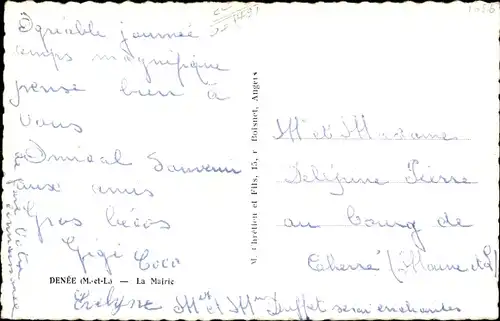 Agréable journée
temps magnifique
pense bien à
vous
Amical Souvenir
aux amis
Gros bécos
Gigi Coco
DENÉE (M.-et-L.) — La Mairie
Evelyne Mr et Mme Duffet serai enchantés
de faire votre connaissance
M. Chrétien et Fils, 15, r. Boisnet, Angers
Mr et Madame
Deléjune Pierre
au bourg de
Cherré (Maine et L)